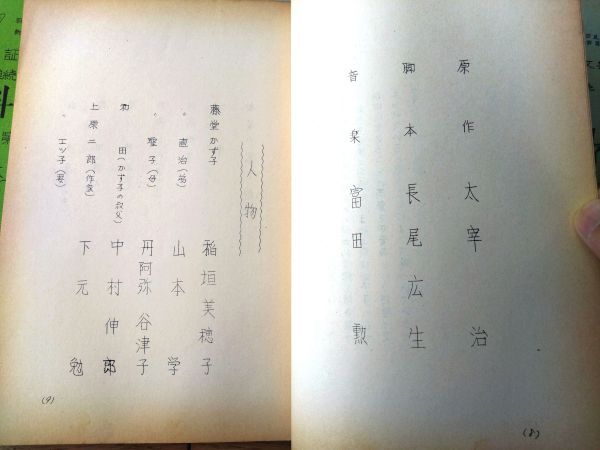 原作 太宰治
脚本 長尾広生
音楽 富田勲
(8)
人物
藤堂かず子 稲垣美穂子
〃 直治(弟) 山本学
〃 聖子(母) 丹阿弥谷津子
和田(かず子の叔父) 中村伸郎
上原二郎(作家) 下元勉
〃 エツ子(妻)
(9)
証